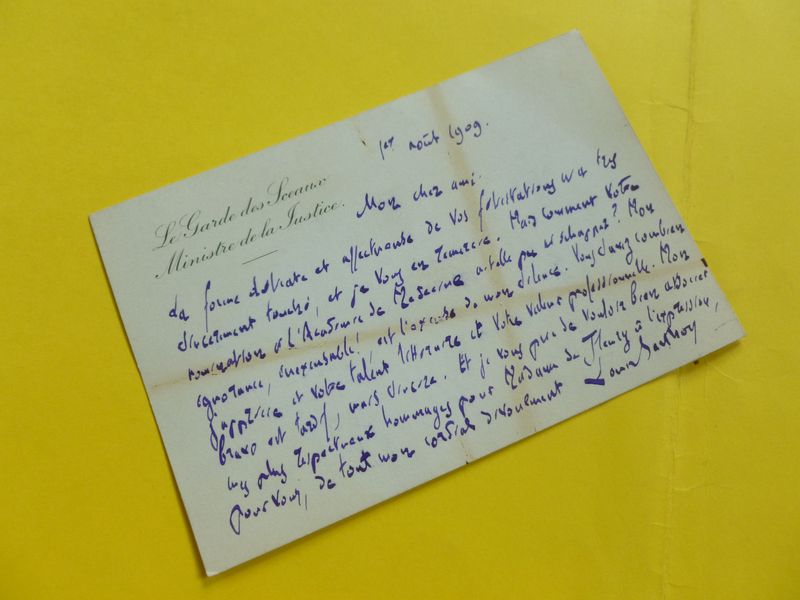 Le Garde des Sceaux
Ministre de la Justice.
1er août 1909.
Mon cher ami.
La forme délicate et affectueuse de vos félicitations m'a très
vivement touché, et je vous en remercie. Mais comment votre
nomination à l'Académie de Médecine a-t-elle pu m'échapper? Mon
ignorance, inexcusable, est l'excuse de mon silence. Vous savez combien
j'apprécie et votre talent littéraire et votre valeur professionnelle. Mon
bravo est tardif, mais sincère. Et je vous prie de vouloir bien associer
mes plus respectueux hommages pour Madame de Fleury à l'expression,
pour vous, de tout mon cordial dévouement
Louis Barthou